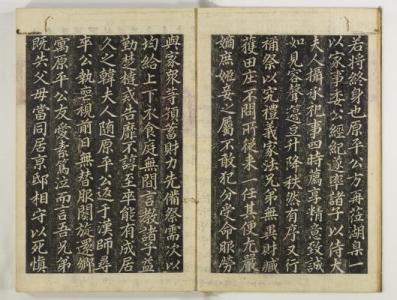 若將終身也原平公方再蒞湖臬一
以家事委公經紀遂率諸子以侍大
夫人攝承祀事四時薦享精意致誠
如見容聲迨旦升降秩然有序又行
禰祭以究禮義家法兄弟無異財臧
獲田庄不問所從來一任其便尤嚴
嫡庶姬妾之屬不敢犯分受人眼勞
與家衆等預蓄財力先備祭需次以
均給上下不食庭無間言教諸子益
勤楚撻或告靡不諄至卒能有成居
久之韓夫人隨原平公返于漢師尋
平公執喪視前日無替服闋旋還鄉
寓原平公友愛素篤泣而言吾兄弟
既失父母當同居京邸相守以死慎